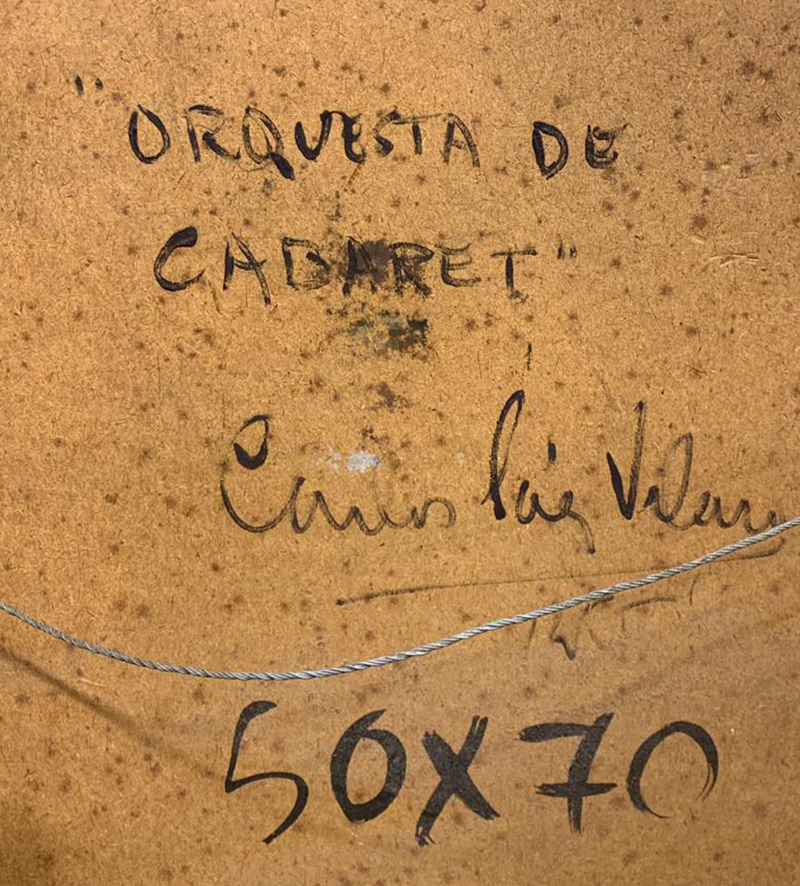 "ORQUESTA DE
CABARET"
Carlos Páez Vilaró
50X70